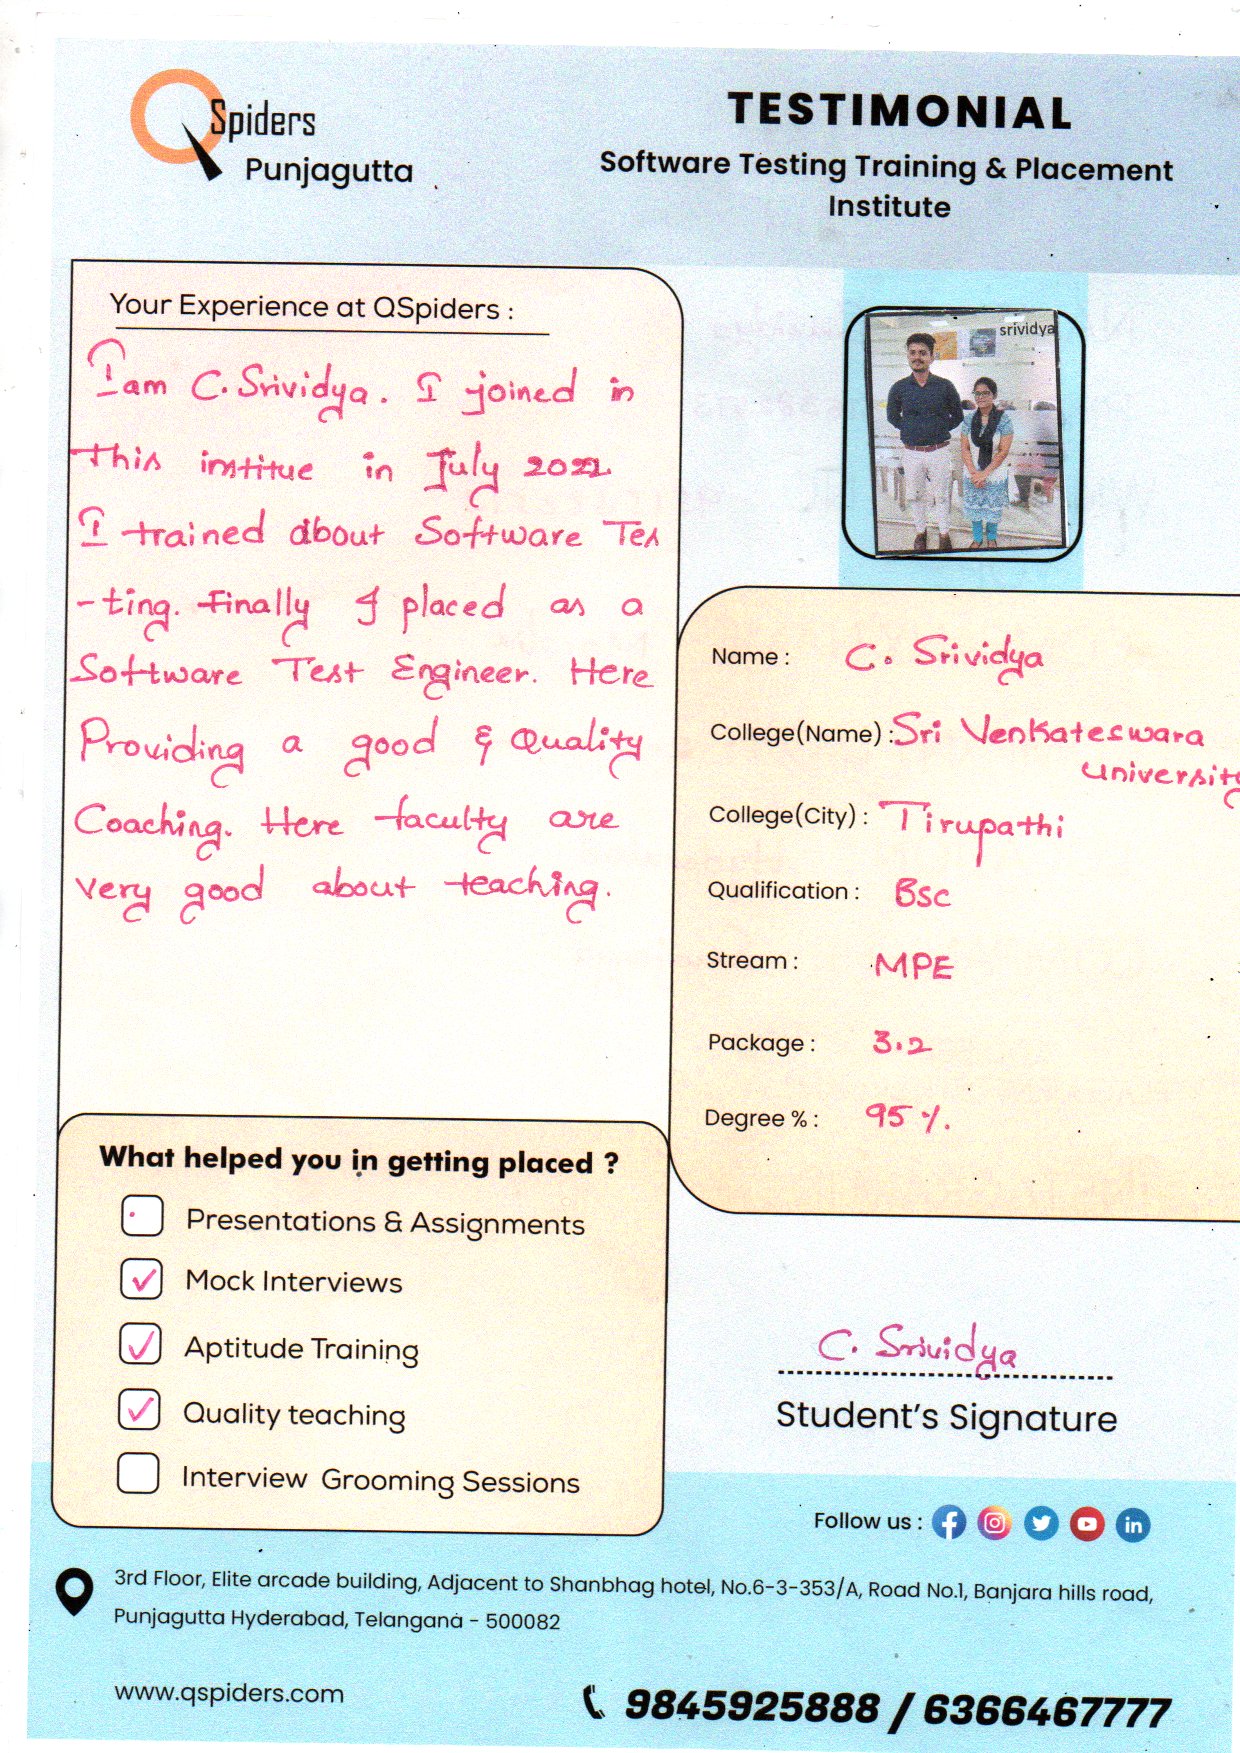 QSpiders
Punjagutta
TESTIMONIAL
Software Testing Training & Placement
Institute
Your Experience at QSpiders :
I am C. Srividya. I joined in
this institue in July 2022
I trained about Software Tes
-ting. Finally I placed as a
Software Test Engineer. Here
Providing a good & Quality
Coaching. Here faculty are
very good about teaching.
srividya
Name : C. Srividya
College(Name) : Sri Venkateswara
University
College(City) : Tirupathi
Qualification : BSC
Stream : MPE
Package : 3.2
Degree % : 95 %.
What helped you in getting placed ?
Presentations & Assignments
✓ Mock Interviews
✓ Aptitude Training
✓ Quality teaching
Interview Grooming Sessions
C. Srividya
Student's Signature
Follow us :
3rd Floor, Elite arcade building, Adjacent to Shanbhag hotel, No.6-3-353/A, Road No.1, Banjara hills road,
Punjagutta Hyderabad, Telangana - 500082
www.qspiders.com
9845925888 / 6366467777